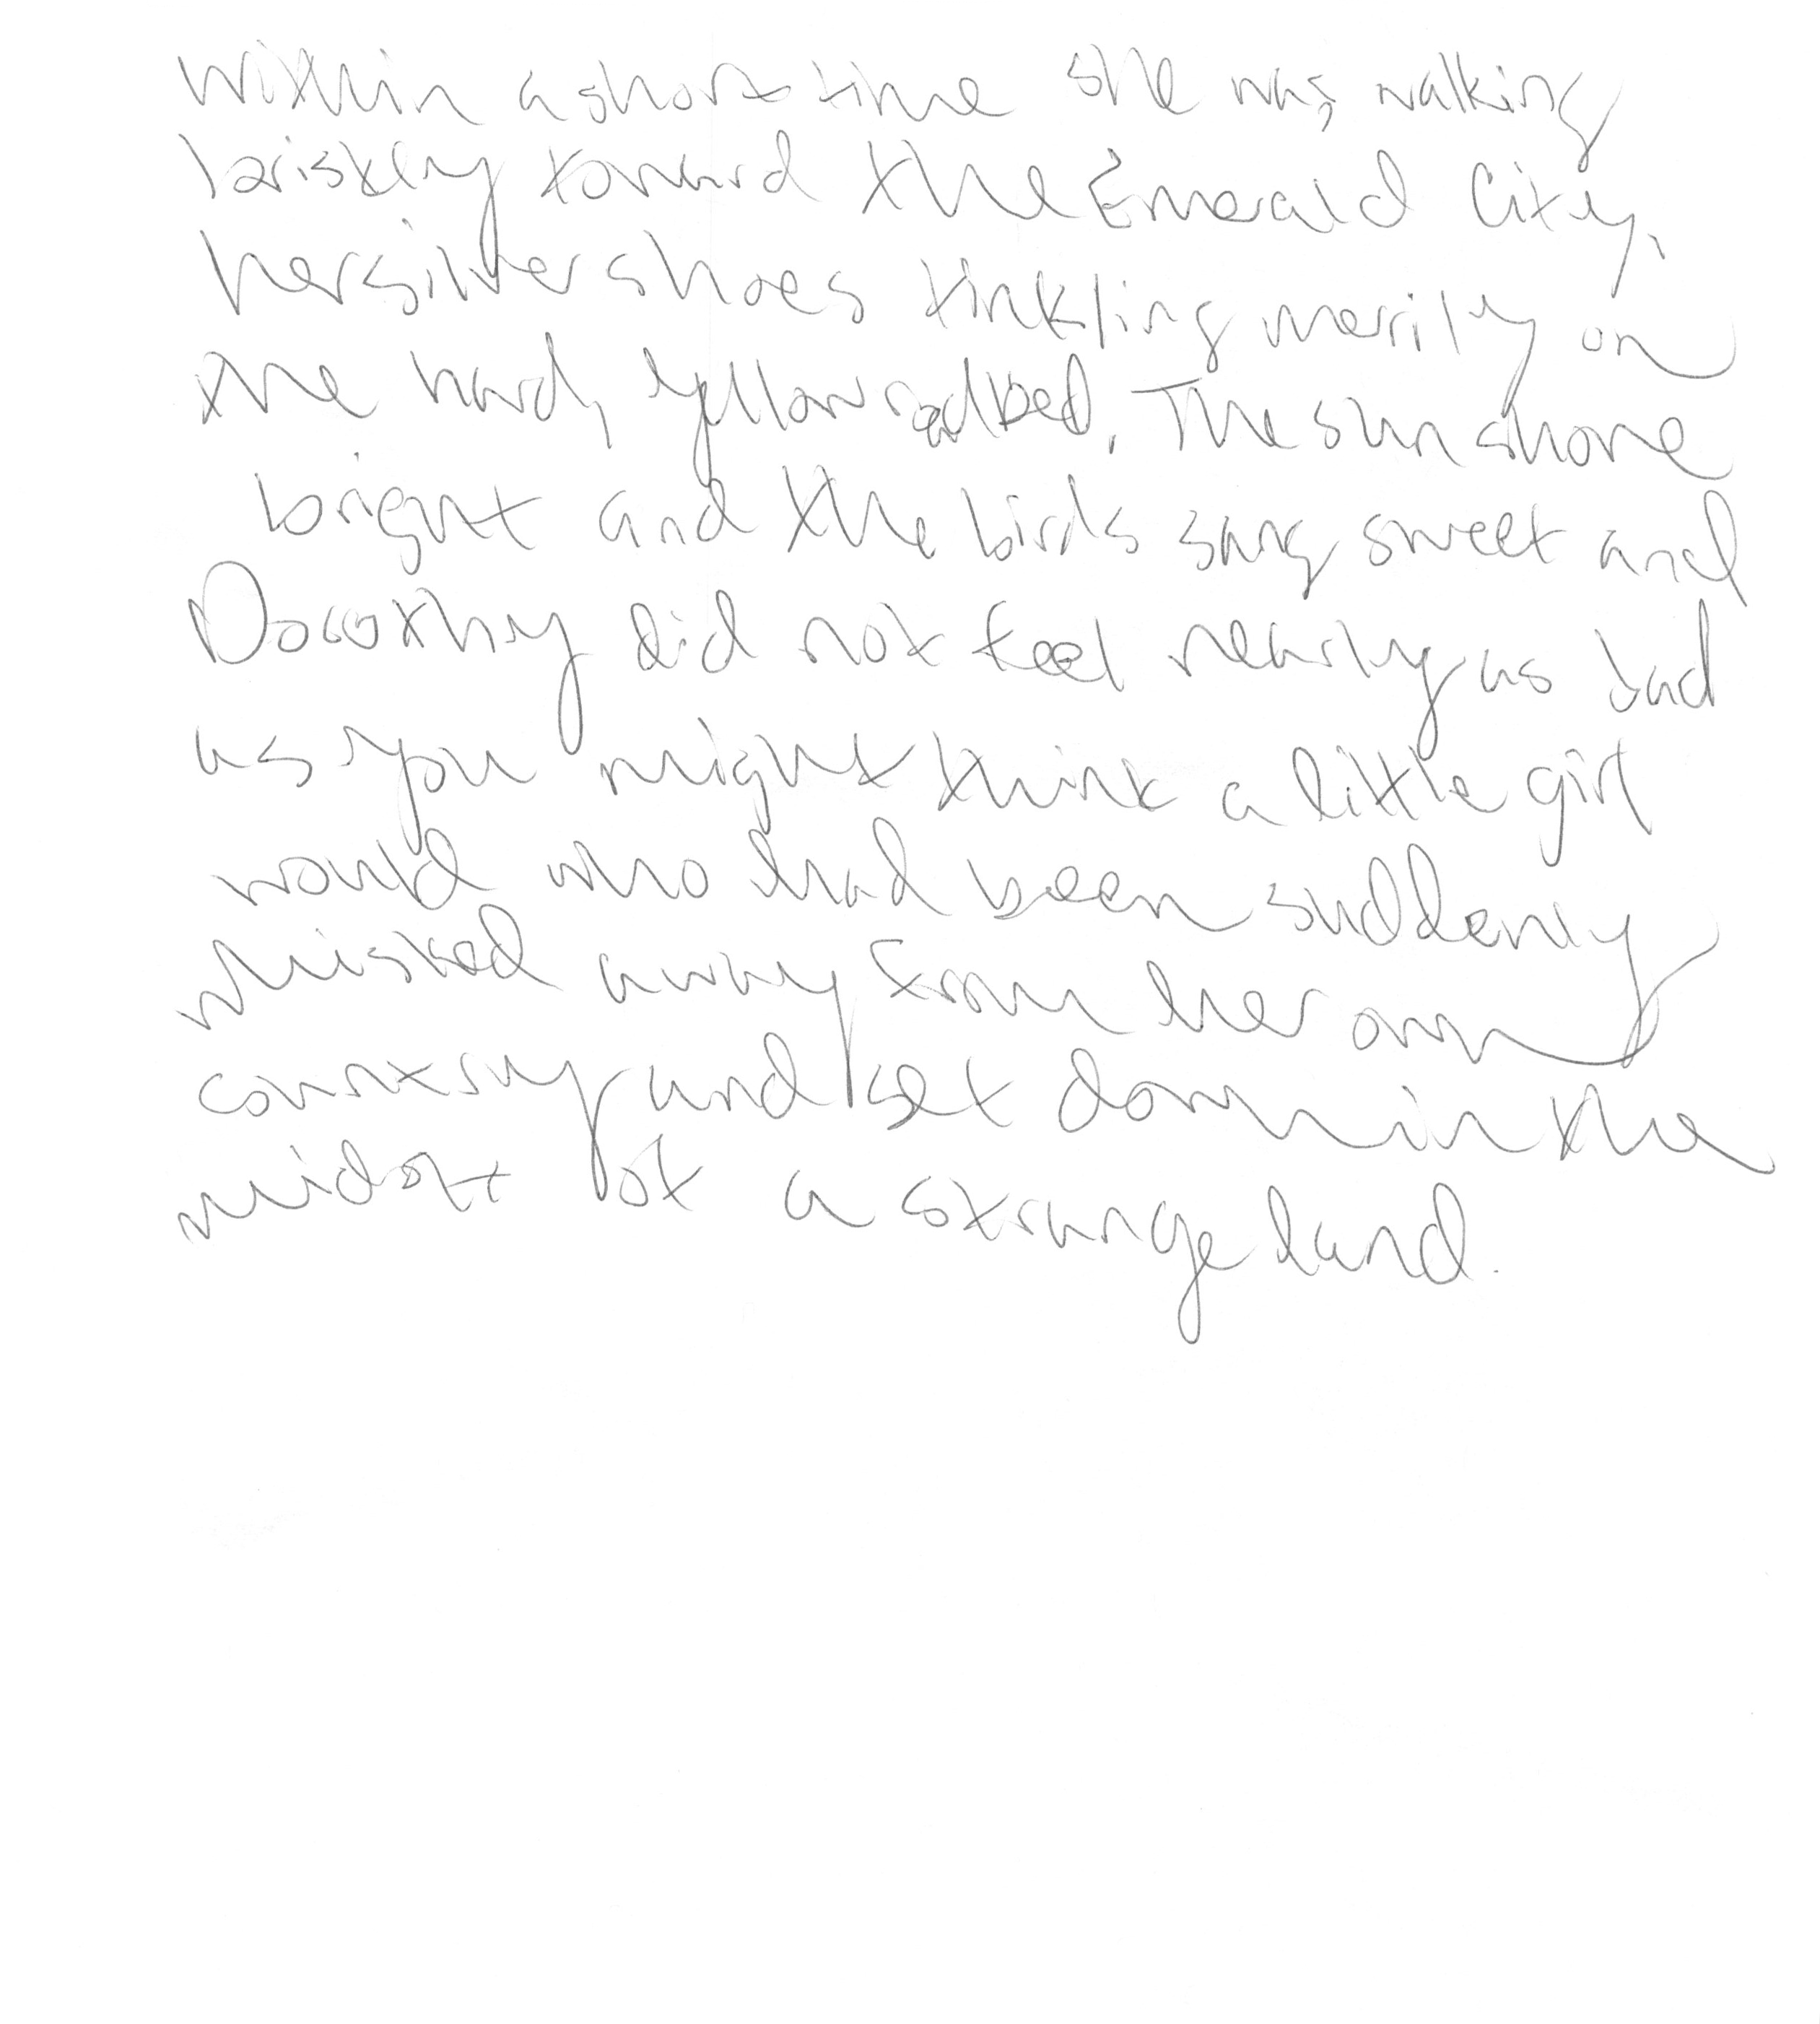 Within a short time she was walking
briskly toward the Emerald City,
her silver shoes tinkling merrily on
the hard, yellow roadbed. The sun shone
bright and the birds sang sweet and
Dorothy did not feel nearly as bad
as you might think a little girl
would who had been suddenly
whisked away from her own
country and set down in the
midst of a strange land.